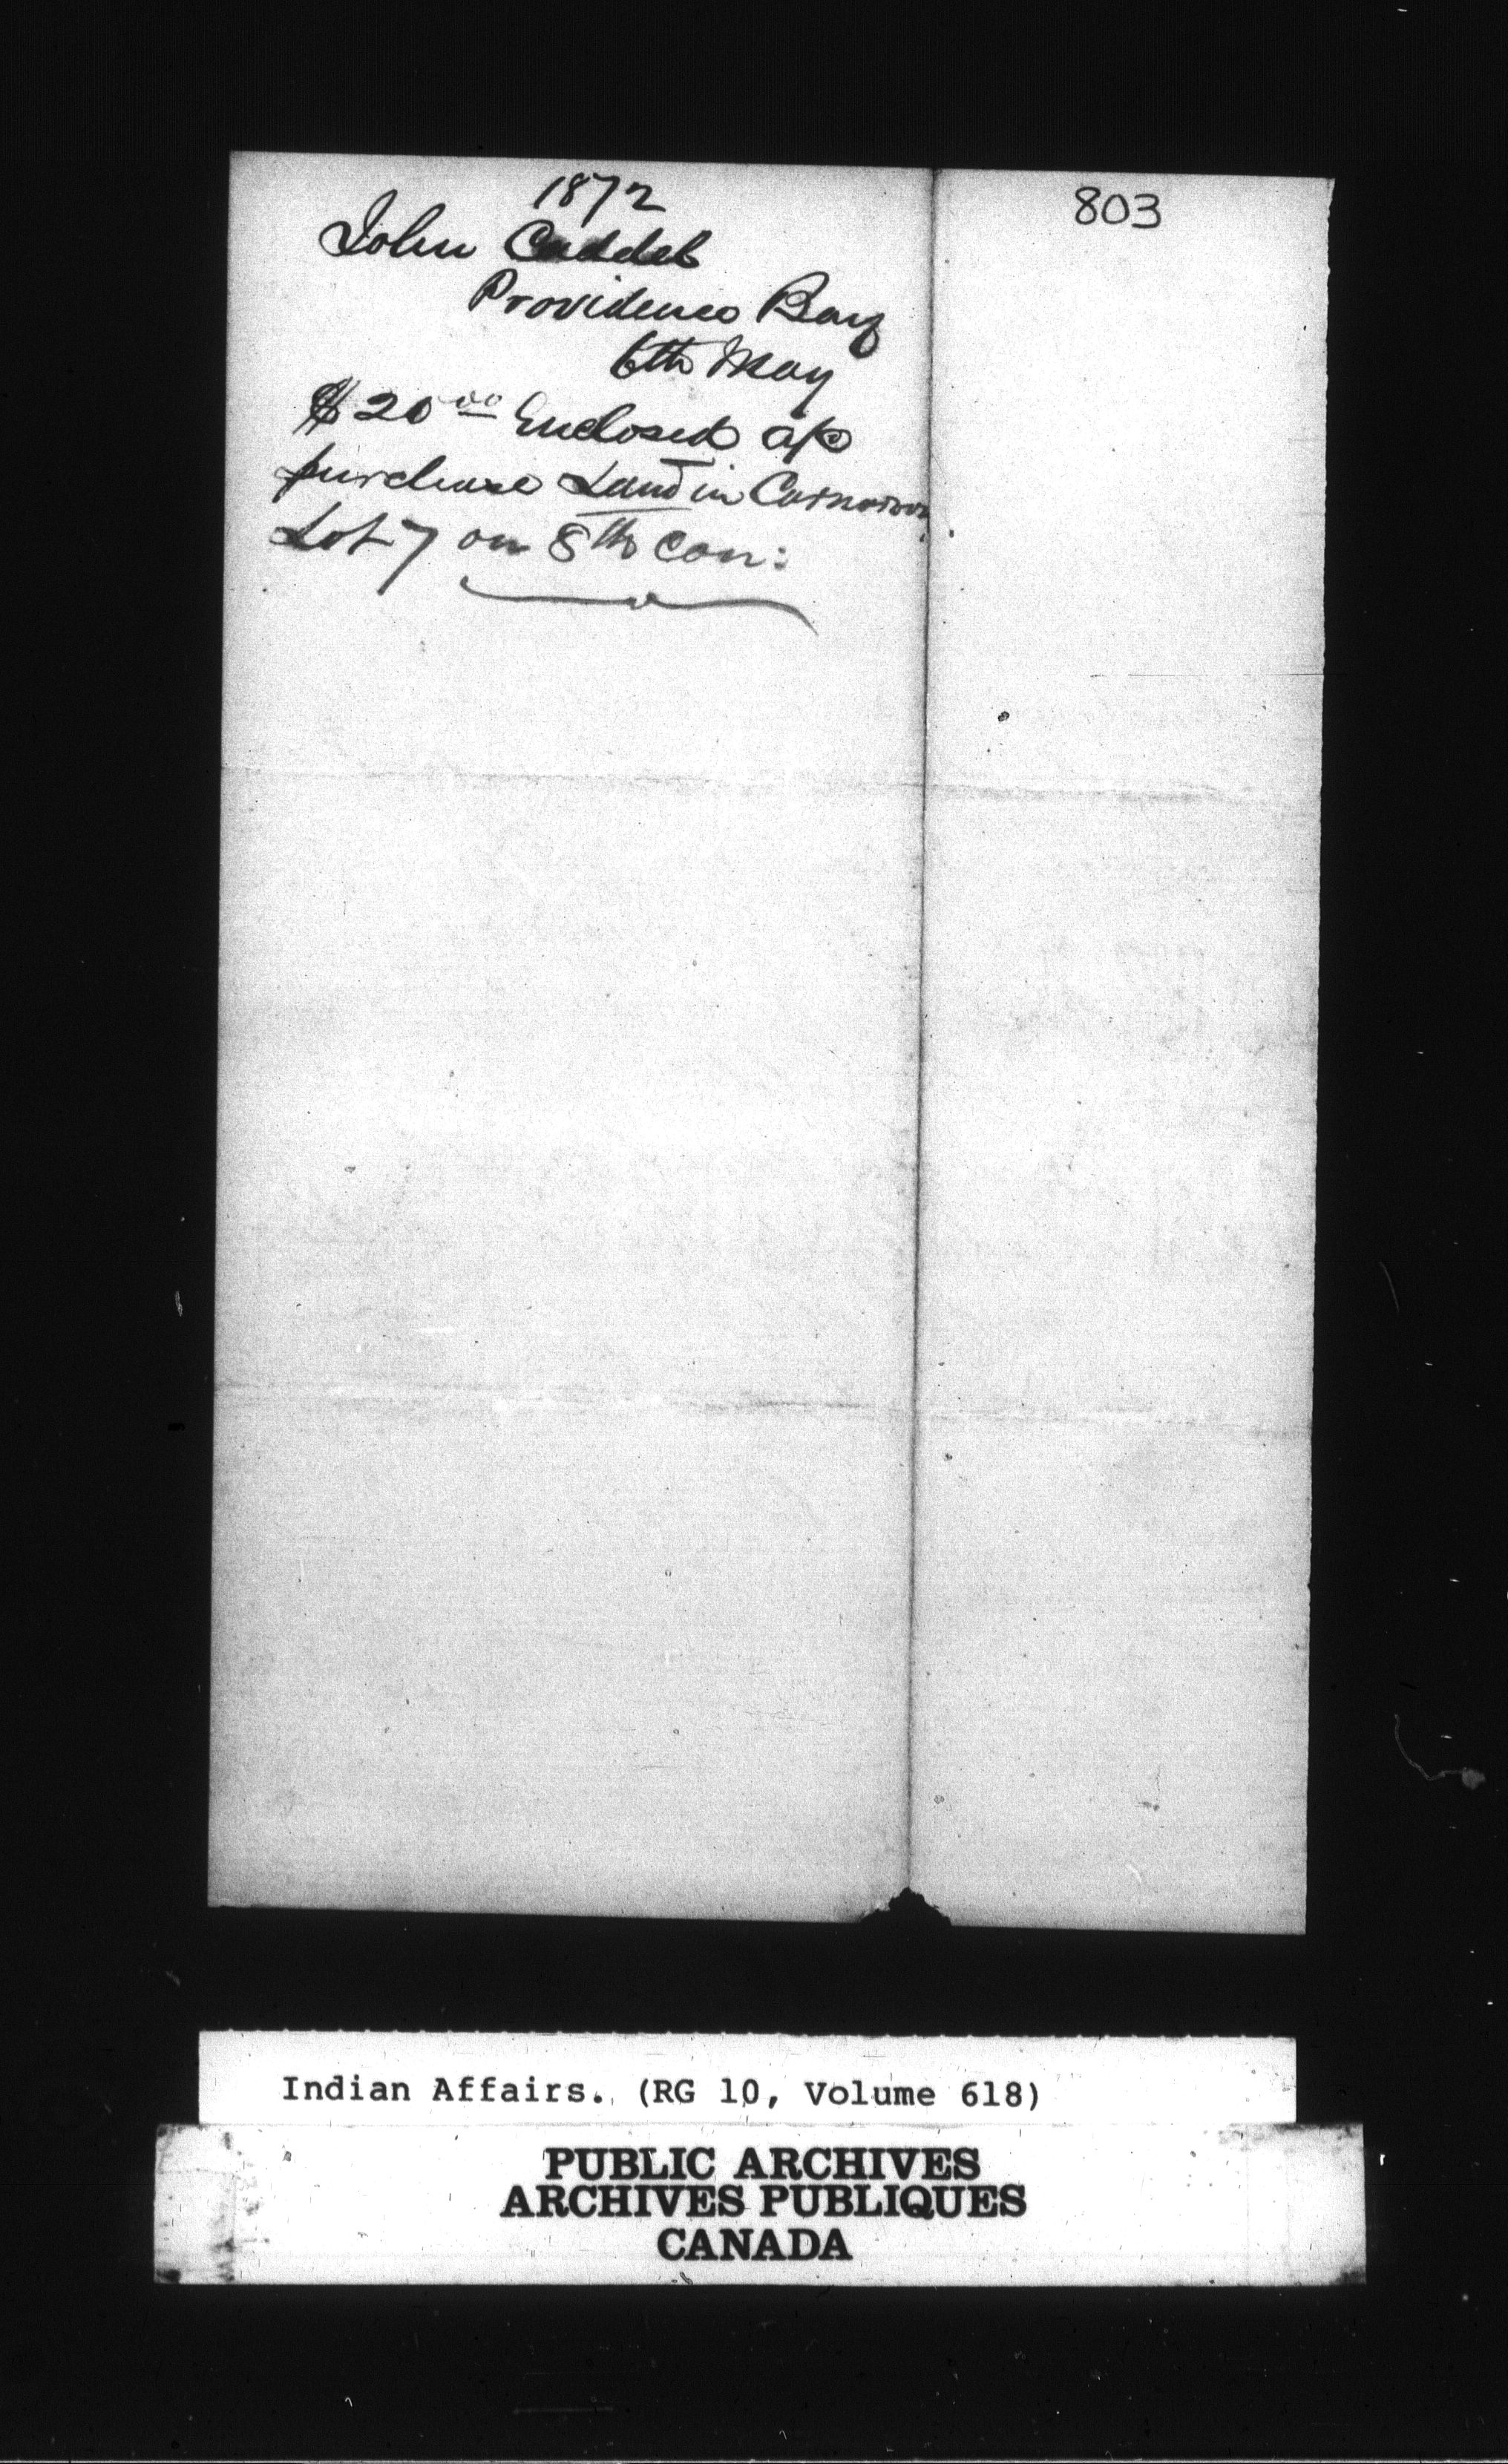 1872
803
John Caddel
Providence Bay
6th May
$20 00 Enclosed a/c
purchase Land in Carnarvon
Lot 7 on 8th Con:
Indian Affairs. (RG 10, Volume 618)
PUBLIC ARCHIVES
ARCHIVES PUBLIQUES
CANADA